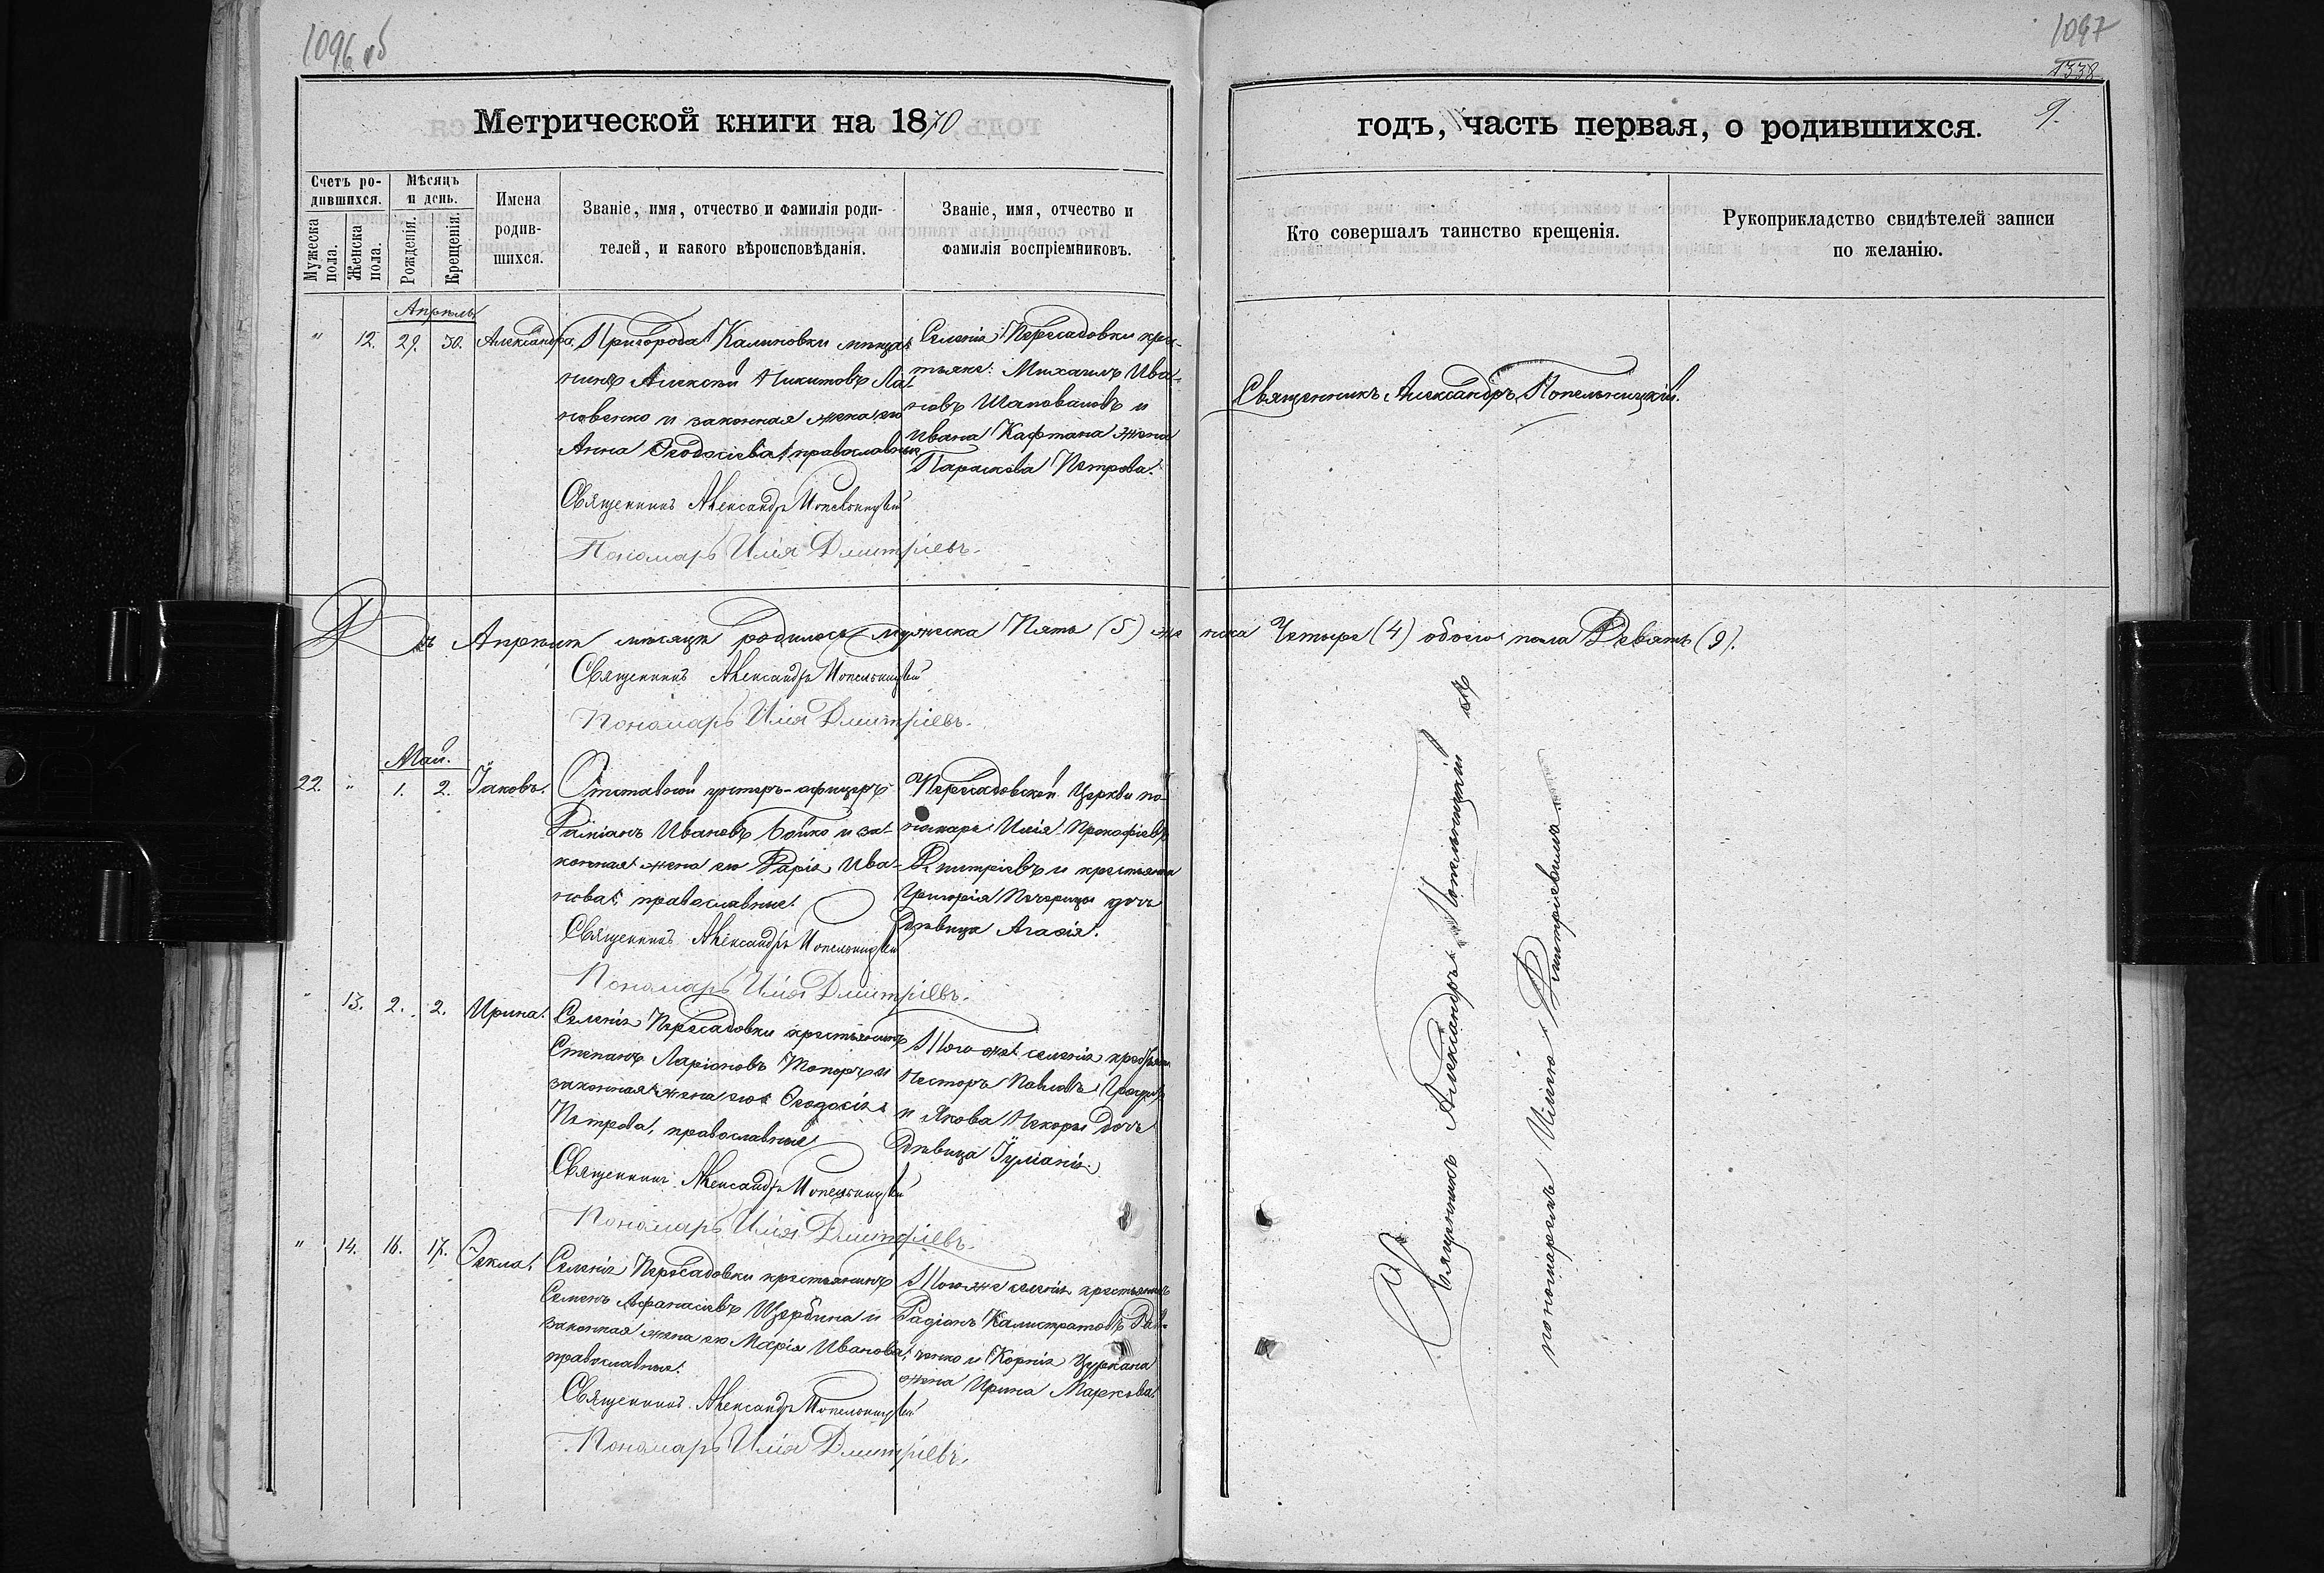 1096 об
1097
1338
9.
Метрической книги на 1870
годъ, часть первая, о родившихся.
Счетъ ро-
дившихся.
Мужеска
пола.
Женска
пола.
Мѣсяцъ
и день.
Рожденія.
Крещенія.
Имена
родив-
шихся.
Званіе, имя, отчество и фамилія роди-
телей, и какого вѣроисповѣданія.
Званіе, имя, отчество и
фамилія воспріемниковъ.
Кто совершалъ таинство крещенія.
Рукоприкладство свидѣтелей записи
по желанію.
Апрѣль
" 12. 29. 30. Александра.
Пригорода Калиновки мѣща-
нинъ Алексѣй Никитовъ
и законная жена его
Анна Ѳеодосіева, православные
Священникъ Александръ Попельницкій
Пономарь Илія Дмитріевъ.
Селенія Пересадовки кре-
стьяне: Михаилъ Ива-
новъ Шаповаловъ и
Ивана Кафтана жена
Параскева Петрова.
Священникъ Александръ Попельницкій.
Въ Апрѣлѣ мѣсяцѣ родилось мужеска Пять (5) женска Четыре (4) обоего пола Девять (9).
Священникъ Александръ Попельницкій
Пономарь Илія Дмитріевъ.
Май.
22. " 1. 2. Іаковъ.
Отставной унтеръ-офицеръ
Даміанъ Ивановъ Бойко и за-
конная жена его Дарія Ива-
нова, православные.
Священникъ Александръ Попельницкій
Пономарь Илія Дмитріевъ.
Пересадовской Церкви по-
номарь Илія Прокофіевъ
Дмитріевъ и крестьянина
Григорія Печерицы дочь
дѣвица Агафія.
" 13. 2. 2. Ирина.
Селенія Пересадовки крестьянинъ
Степанъ Ларіоновъ Топоръ и
законная жена его Ѳеодосія
Петрова, православные
Священникъ Александръ Попельницкій
Пономарь Илія Дмитріевъ.
Того-же селенія
Несторъ Павловъ
и Якова дочь
дѣвица Іуліанія.
" 14. 16. 17. Ѳекла.
Селенія Пересадовки крестьянинъ
Семенъ Афанасіевъ Щербина и
законная жена его Марія Иванова,
православные.
Священникъ Александръ Попельницкій
Пономарь Илія Дмитріевъ.
Того-же селенія крестьянинъ
Радіонъ Калистратовъ
и Корнія Цуркана
жена Ирина Маркова.
Священникъ Александръ Попельницкій съ
пономаремъ Иліею Дмитріевымъ.